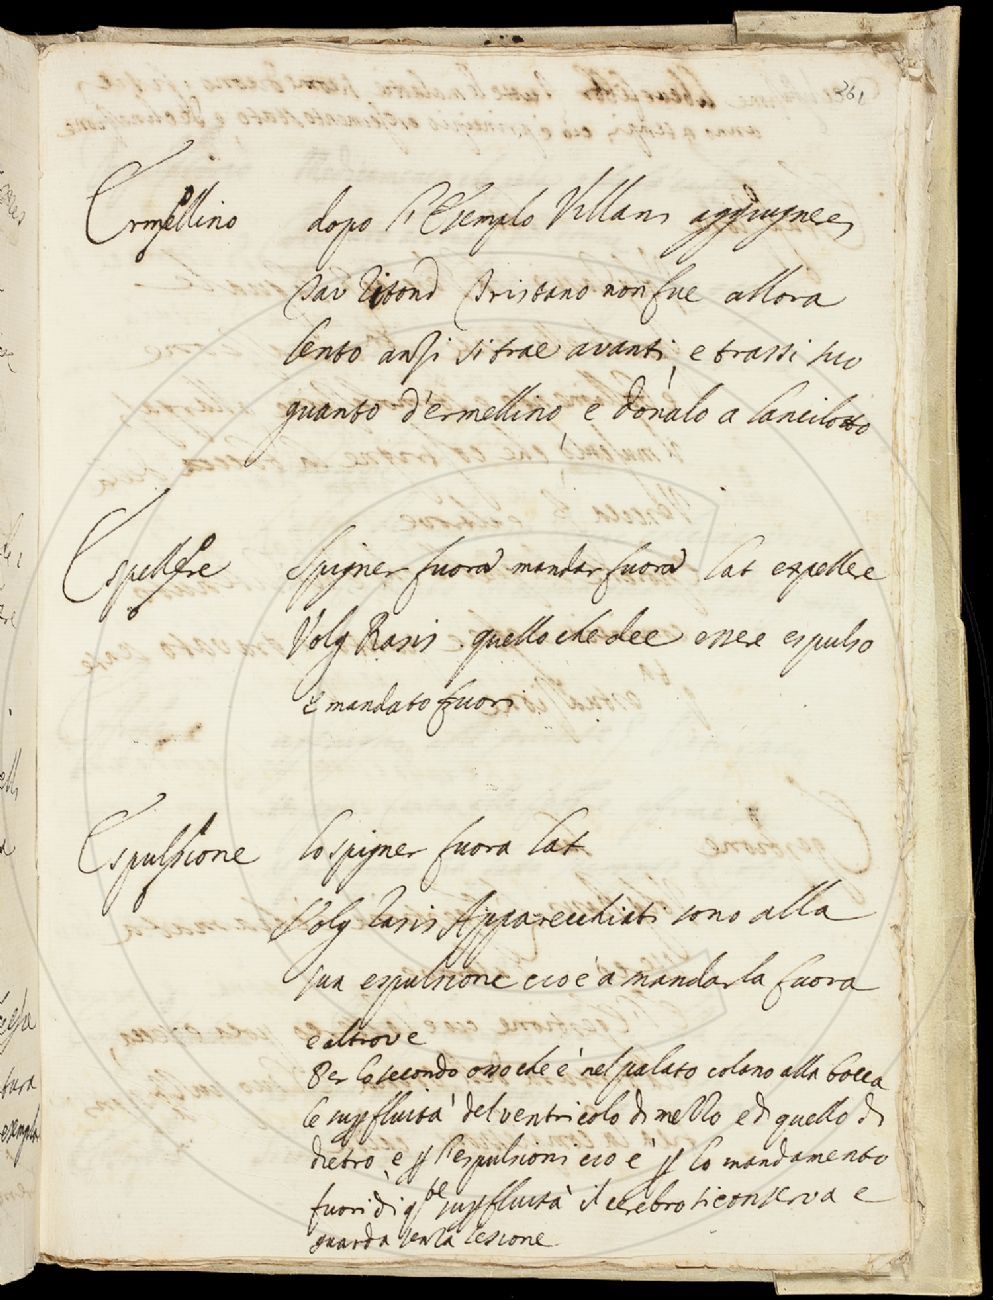 261
Ermellino dopo l'Esemplo Villani aggiugnere
Tav Ritond Tristano non fue allora
lento anzi si trae avanti, e trassi suo
guanto d'ermellino, e donalo a Lancilotto
Espellere Spigner fuora mandar fuora Lat expellere
Volg Rasis quello che dee essere espulso
e mandato fuori
Espulsione Lo spigner fuora Lat
Volg Rasis Apparecchiati sono alla
sua espulsione cioè a mandarla fuora
e altrove
Per lo secondo osso che è nel palato colano alla bocca
le supfluità del ventricolo di mezzo e di quello di
dietro, e p l'espulsioni cio è p lo mandamento
fuori di qste supfluità il celebro si conserva e
guarda senza lesione